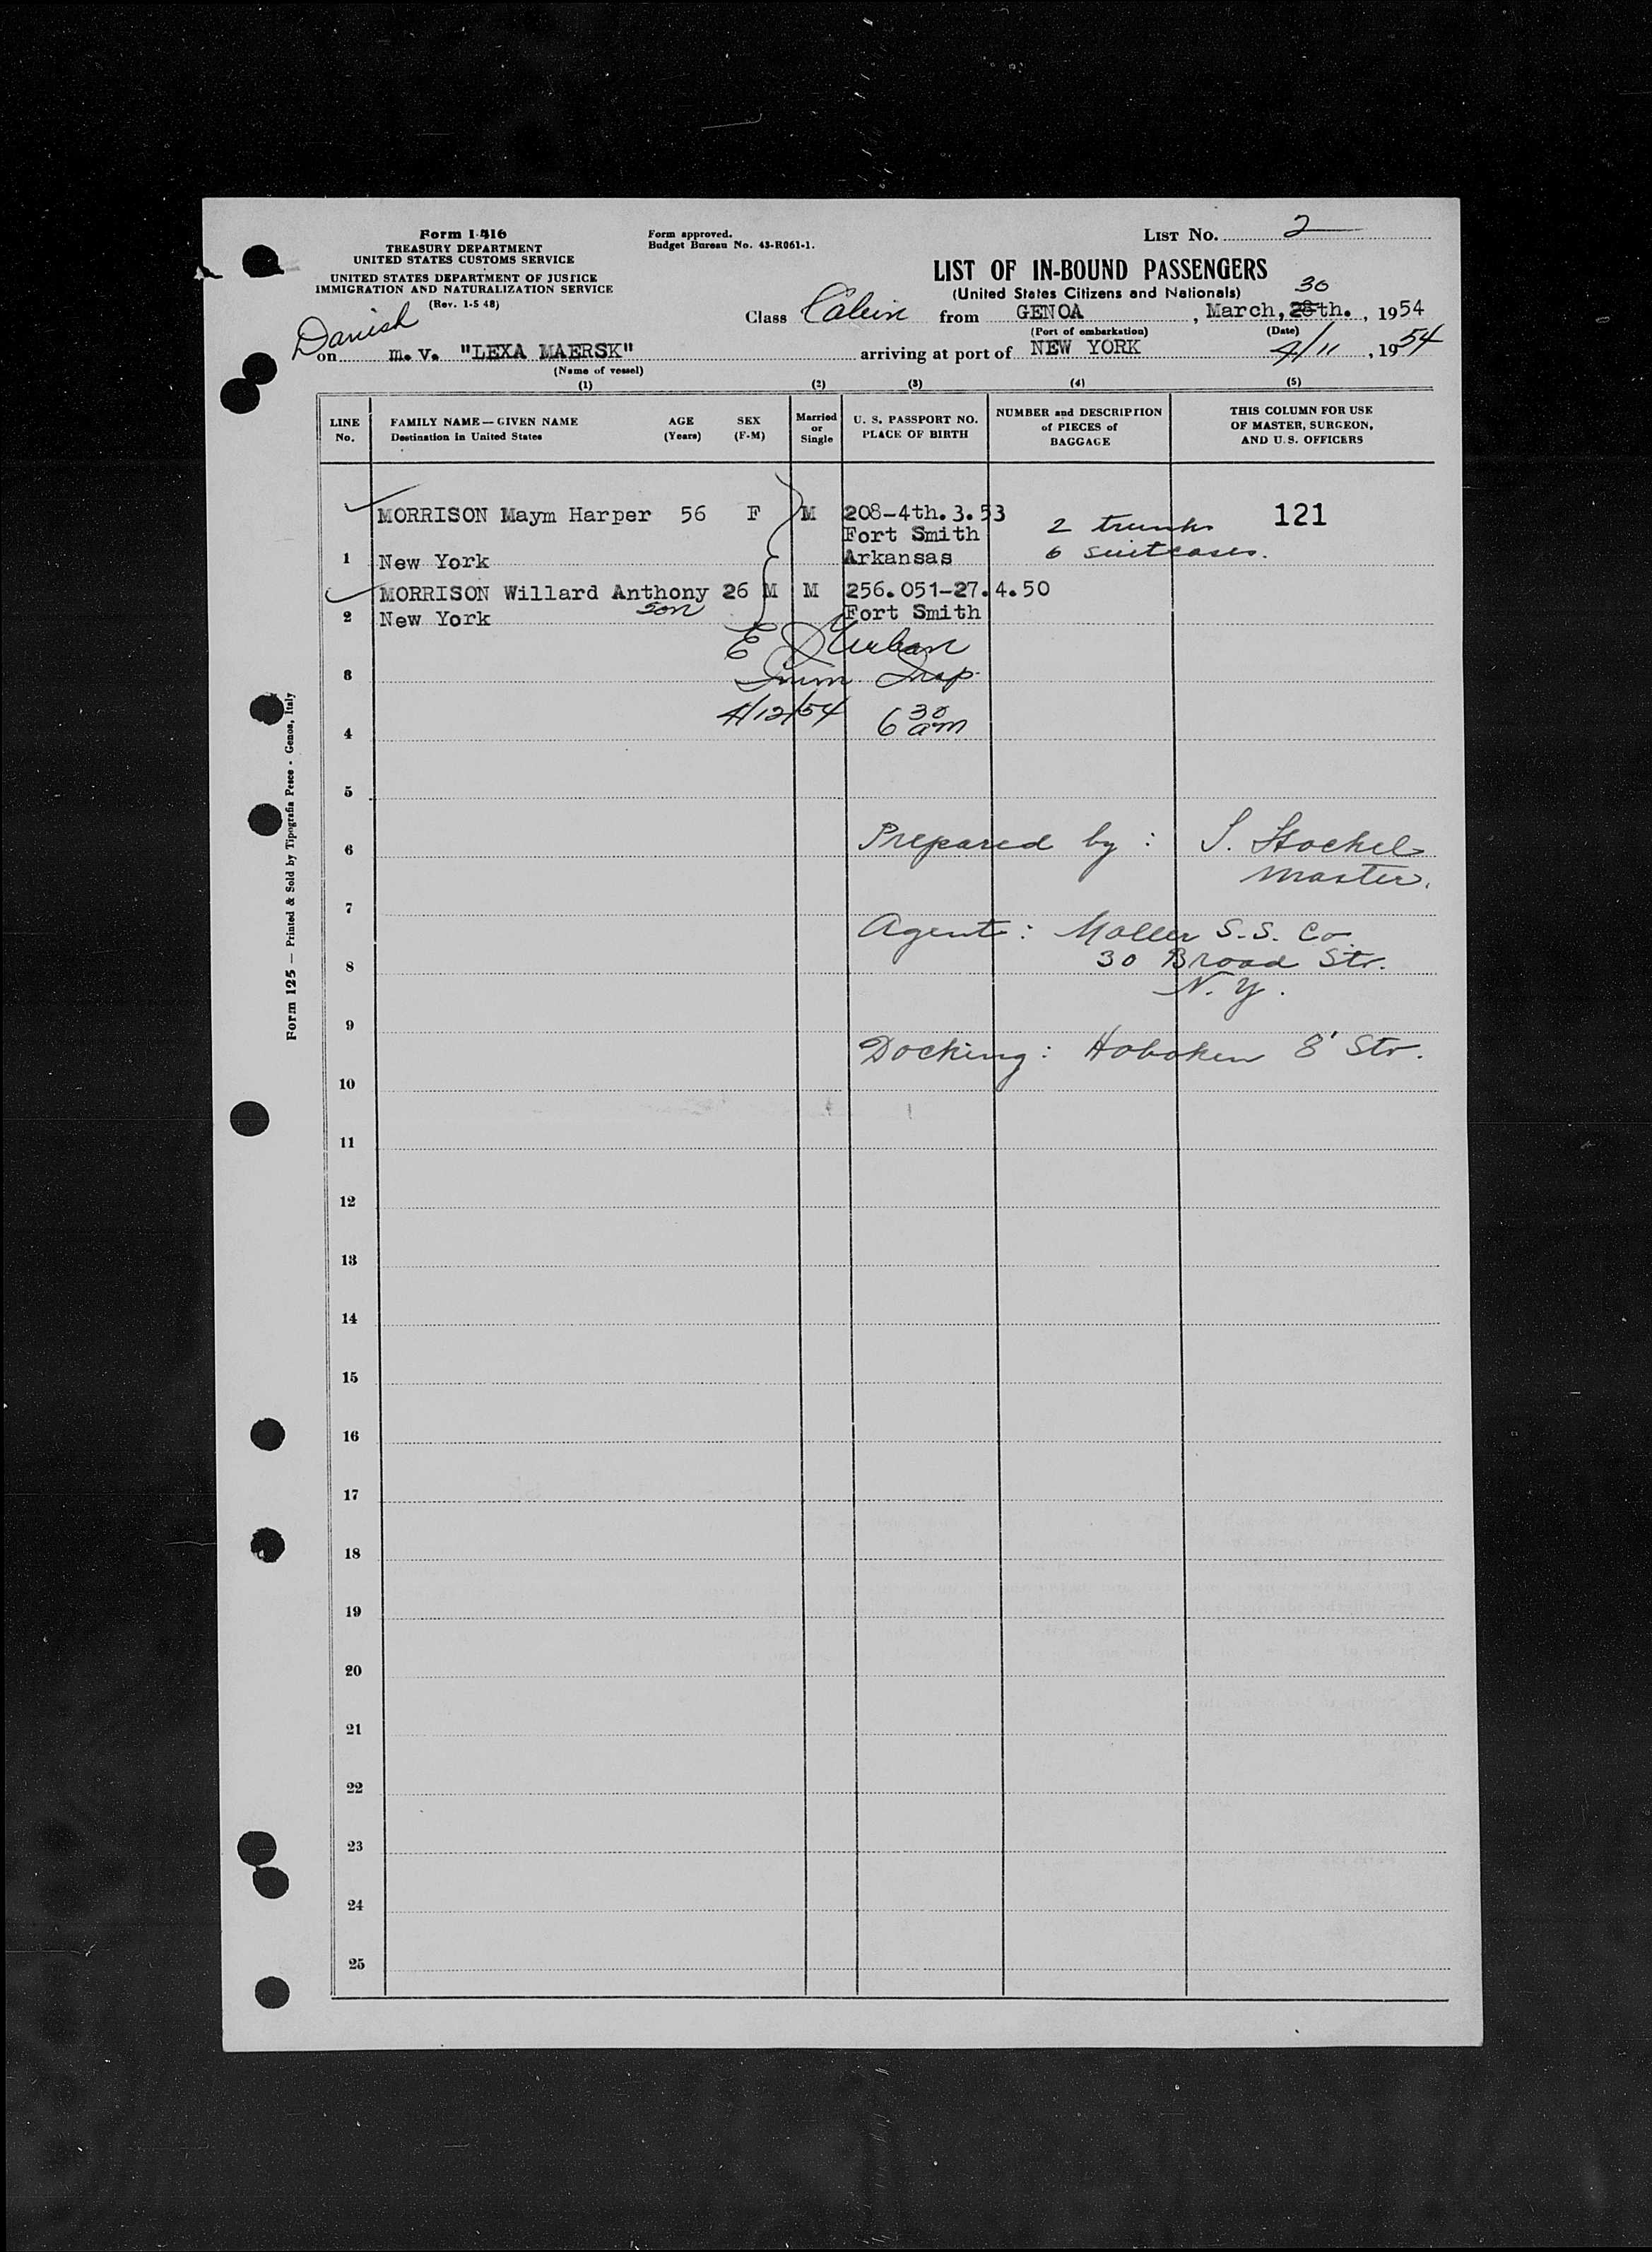 Form I-416
TREASURY DEPARTMENT
UNITED STATES CUSTOMS SERVICE
UNITED STATES DEPARTMENT OF JUSTICE
IMMIGRATION AND NATURALIZATION SERVICE
(Rev. 1-5 48)
Form approved.
Budget Bureau No. 43-R061-1.
LIST No. 2
LIST OF IN-BOUND PASSENGERS
(United States Citizens and Nationals)
30
Class Cabin from GENOA, March, 28th., 1954
(Port of embarkation) (Date)
Danish
on m. v. "LEXA MAERSK" arriving at port of NEW YORK 4/11, 1954
(Name of vessel)
(1) (2) (3) (4) (5)
LINE No.
FAMILY NAME — GIVEN NAME
Destination in United States
AGE (Years)
SEX (F-M)
Married or Single
U. S. PASSPORT NO.
PLACE OF BIRTH
NUMBER and DESCRIPTION of PIECES of BAGGAGE
THIS COLUMN FOR USE OF MASTER, SURGEON, AND U.S. OFFICERS
MORRISON Maym Harper 56 F M 208-4th.3.53 121
Fort Smith 2 trunks
1 New York Arkansas 6 suitcases.
MORRISON Willard Anthony 26 M M 256.051-27.4.50
son
2 New York Fort Smith
E
3 Imm Insp.
4/12/54 6 30 am
4
5
6 Prepared by : S. Stockel
Master.
7
Agent : Moller S.S. Co.
8 30 Broad Str.
N.Y.
9
Docking : Hoboken 8' Str.
10
11
12
13
14
15
16
17
18
19
20
21
22
23
24
25
Form 125 — Printed & Sold by Tipografia Pesce - Genoa, Italy